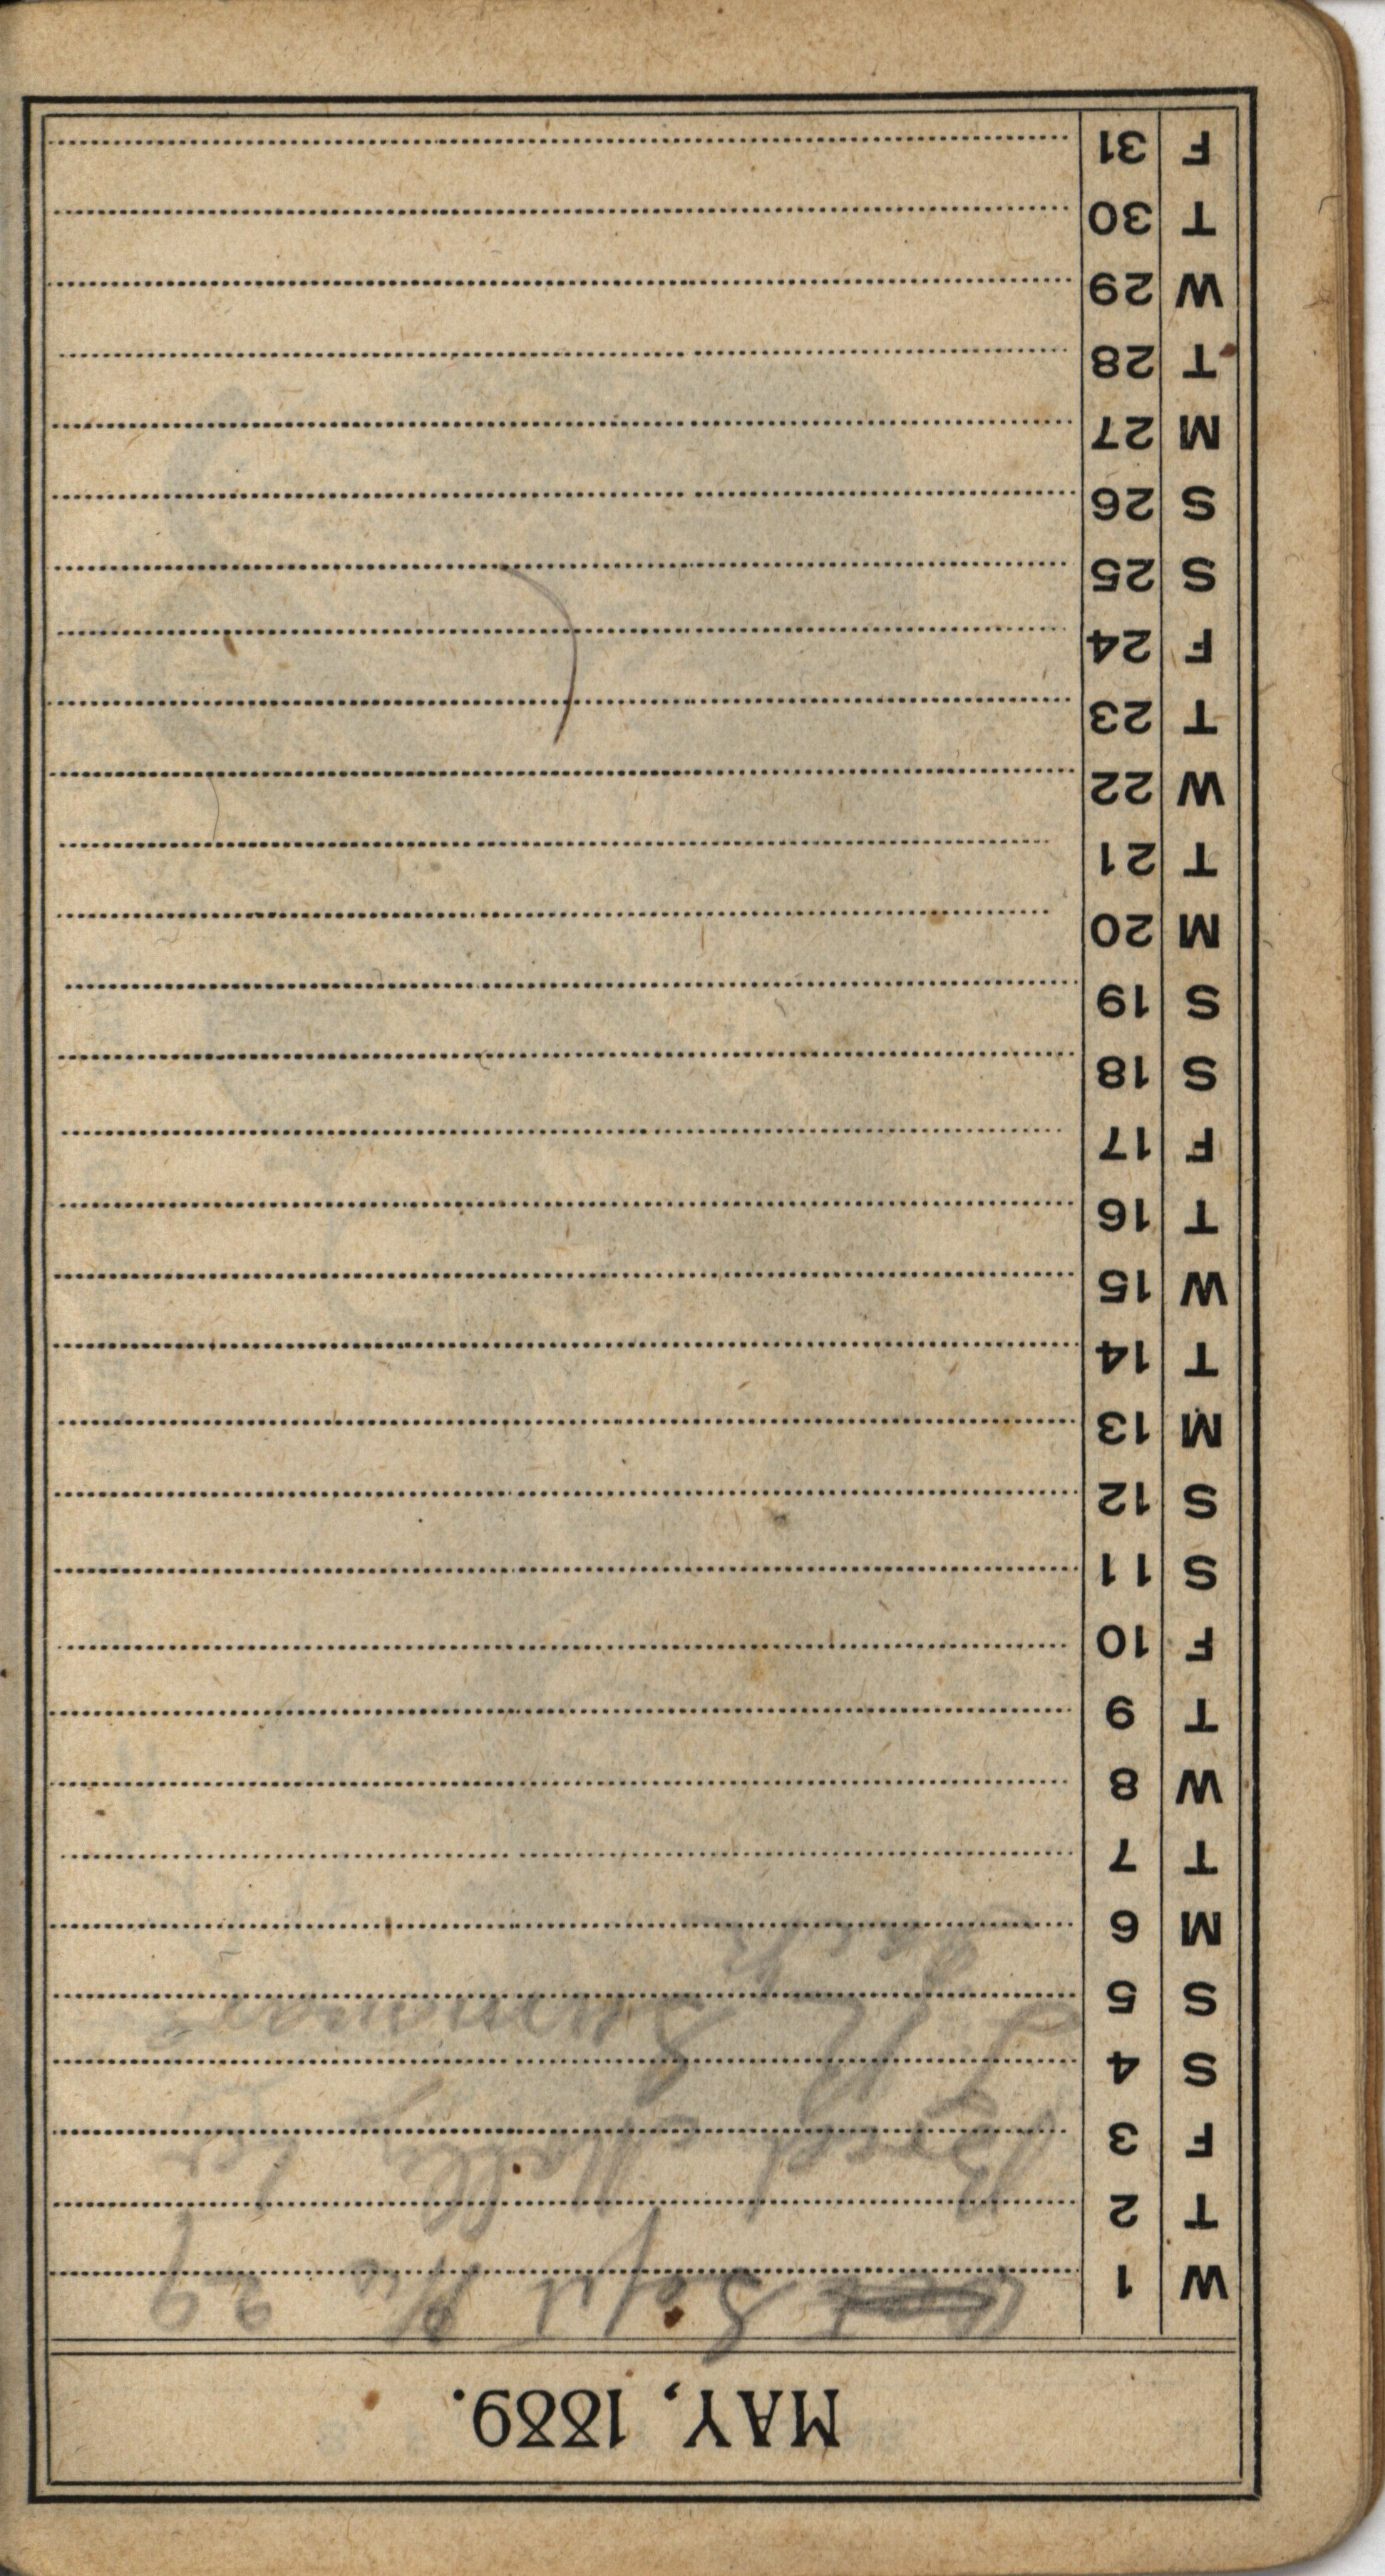 MAY, 1889.
W 1 Sept
T 2
F 3
S 4
S 5
M 6
T 7
W 8
T 9
F 10
S 11
S 12
M 13
T 14
W 15
T 16
F 17
S 18
S 19
M 20
T 21
W 22
T 23
F 24
S 25
S 26
M 27
T 28
W 29
T 30
F 31